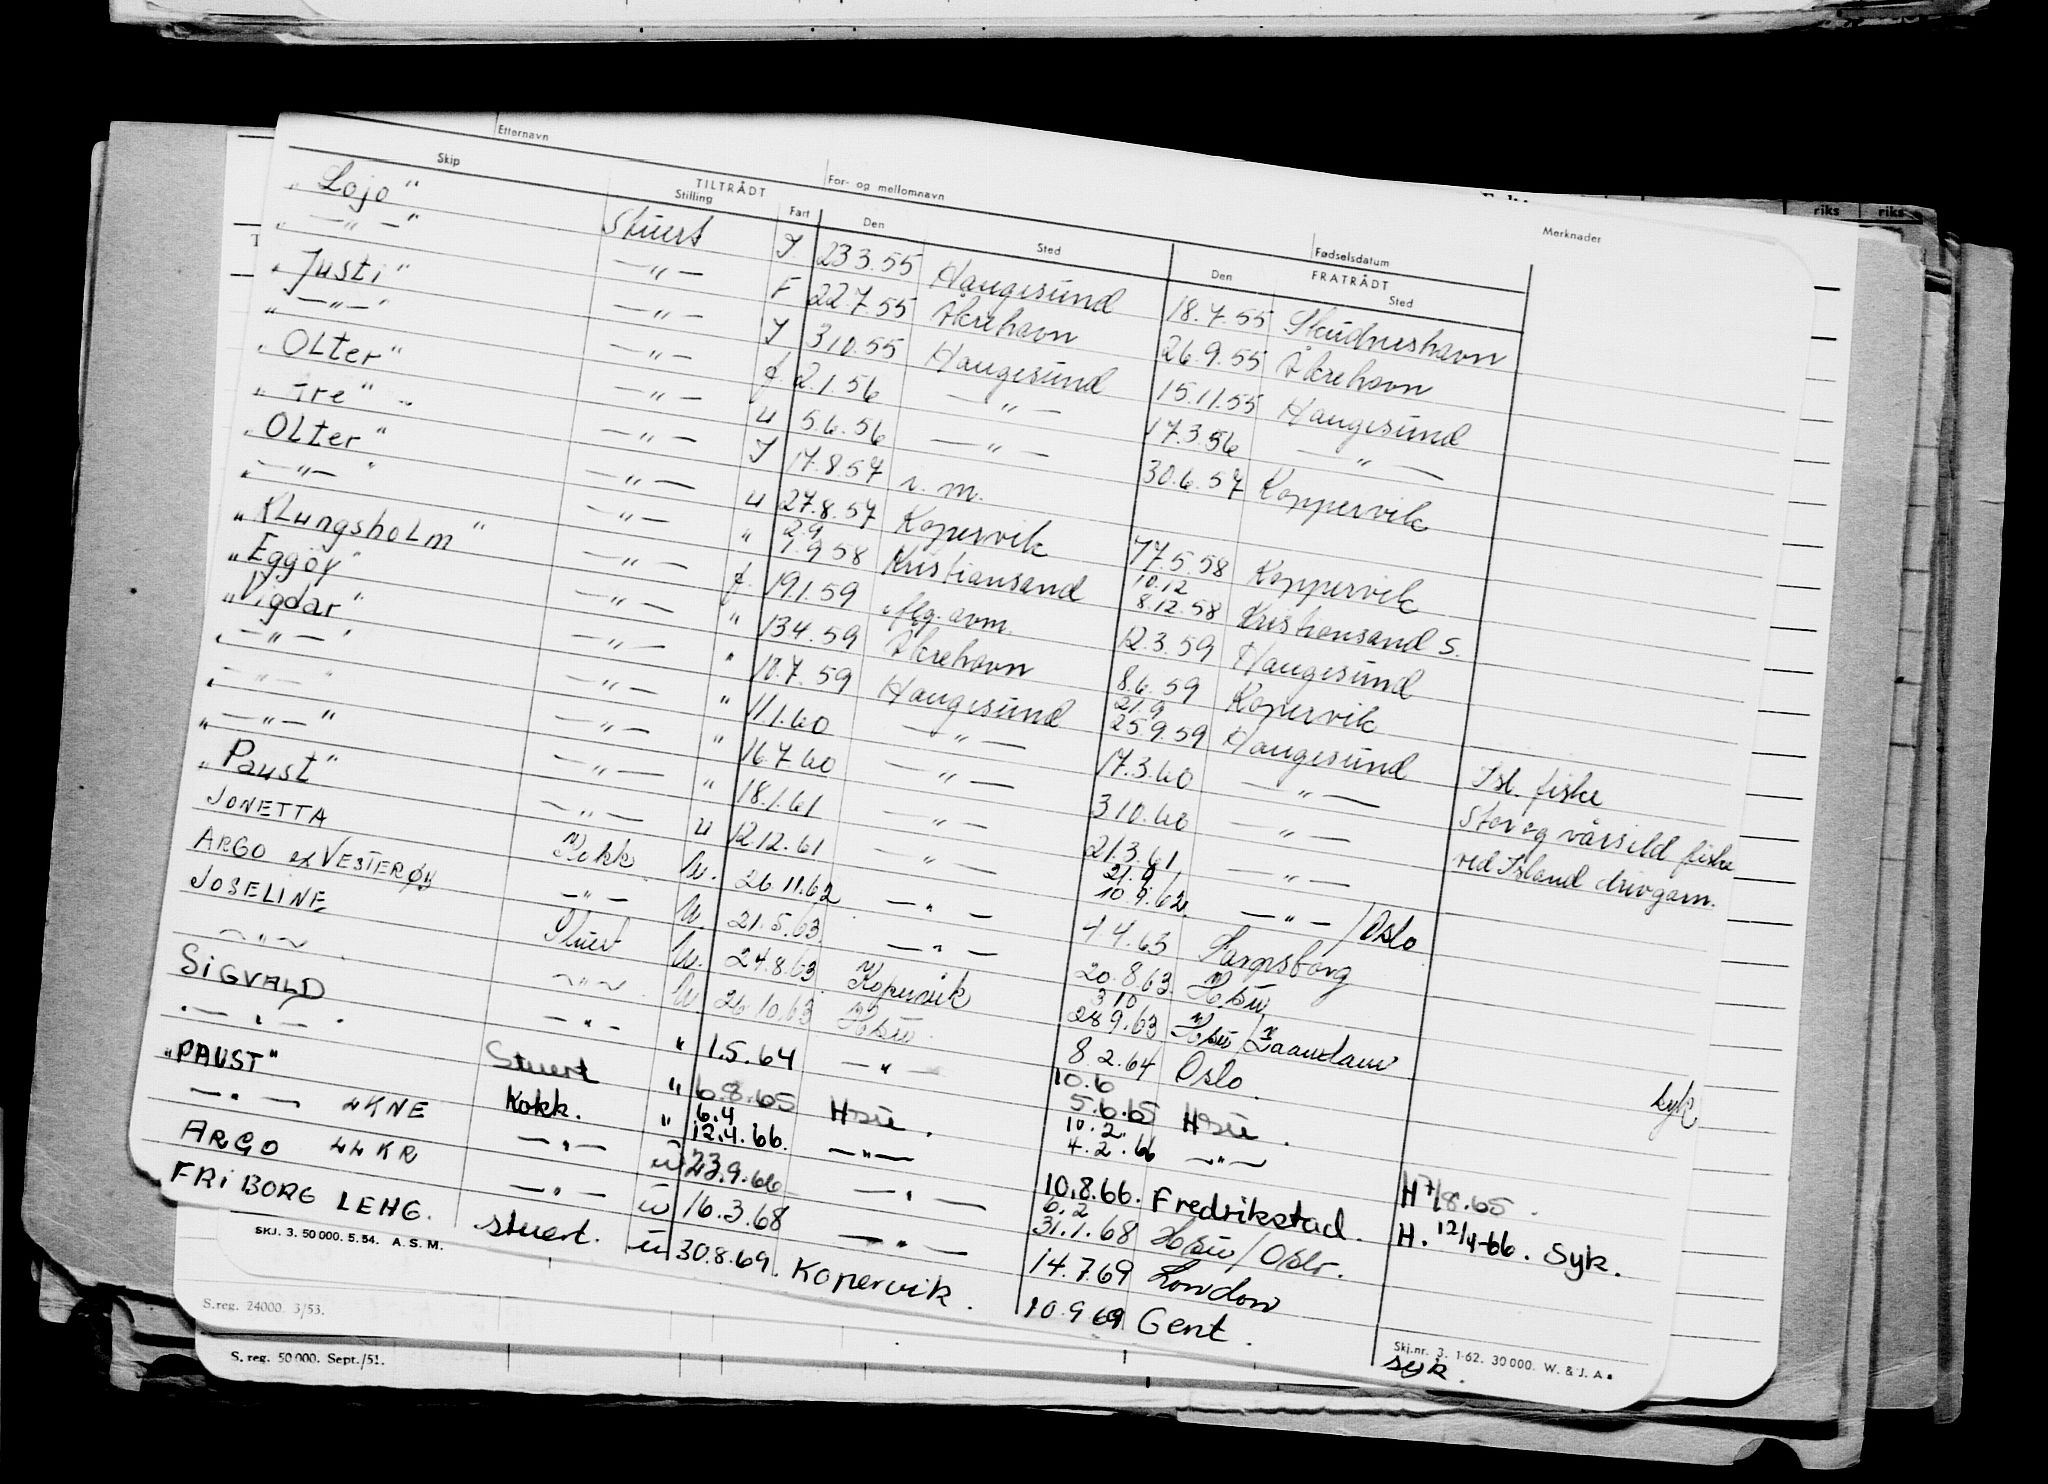 Etternavn For- og mellomnavn Fødselsdatum
Skip TILTRÅDT Stilling Fart Den Sted FRATRÅDT Den Sted Merknader
riks riks
"Lojo" Stuert I 23.3.55 Haugesund 18.7.55 Skudneshavn
" — " — " — " — F 22.7.55 Åkrehavn 26.9.55 Åkrehavn
"Justi" — " — I 3.10.55 Haugesund 15.11.55 Haugesund
" — " — " — " — f 2.1.56 — " — 17.3.56 — " —
"OLter" — " — U 5.6.56 — " — 30.6.57 Koppervik
"Tre" — " — I 17.8.57 n.m.
"OLter" — " — U 27.8.57 Kopervik 17.5.58 Koppervik
" — " — " — " — " 2.9 1.9.58 Kristiansand 10.12 8.12.58 Kristiansand S.
"KLungsholm" — " — f. 19.1.59 flg. avm. 12.3.59 Haugesund
"Eggøy" — " — " 13.4.59 Åkrehavn 8.6.59 Kopervik
"Vigdar" — " — " 10.7.59 Haugesund 21.9 25.9.59 Haugesund Isl. fiske
" — " — " — " — " 11.1.60 — " — 17.3.60 — " — Stor og vårsild fiske
" — " — " — " — " 16.7.60 — " — 3.10.60 — " — ved Island drivgarn.
" — " — " — " — " 18.1.61 — " — 21.3.61 — " —
"Paust" — " — U 12.12.61 — " — 21.9 10.9.62 — " — / Oslo
JONETTA Kokk U. 26.11.62 — " — 4.4.63 Sarpsborg
ARGO ex VESTERØY — " — U. 21.5.63 — " — 20.8.63 Hsu
JOSELINE Stuert U. 24.8.63 Kopervik 3.10 28.9.63 Hsu / Zaandam
— " — — " — U. 26.10.63 Hsu. 8.2.64 Oslo. syk
SIGVALD — " — " 1.5.64 — " — 10.6 5.6.65 Hsu.
" — " — " Stuert " 6.8.65 Hsu. 10.2. 4.2.66 — " — H 7/8.65.
"PAUST" Kokk. " 6.4 12.4.66. — " — 10.8.66. Fredrikstad. H. 12/4-66. Syk.
— " — LKNE — " — u 23.9.66 — " — 6.2 31.1.68 Hsu / Oslo.
ARGO LLKR — " — u 16.3.68 — " — 14.7.69 London
FRIBORG LEHG. stuert. u 30.8.69. Kopervik. 10.9.69 Gent. syk.
SKJ. 3. 50 000. 5.54. A.S.M.
Skj.nr. 3. 1-62. 30 000. W. & J. A.
S.reg. 24000. 3/53.
S. reg. 50 000. Sept./51.